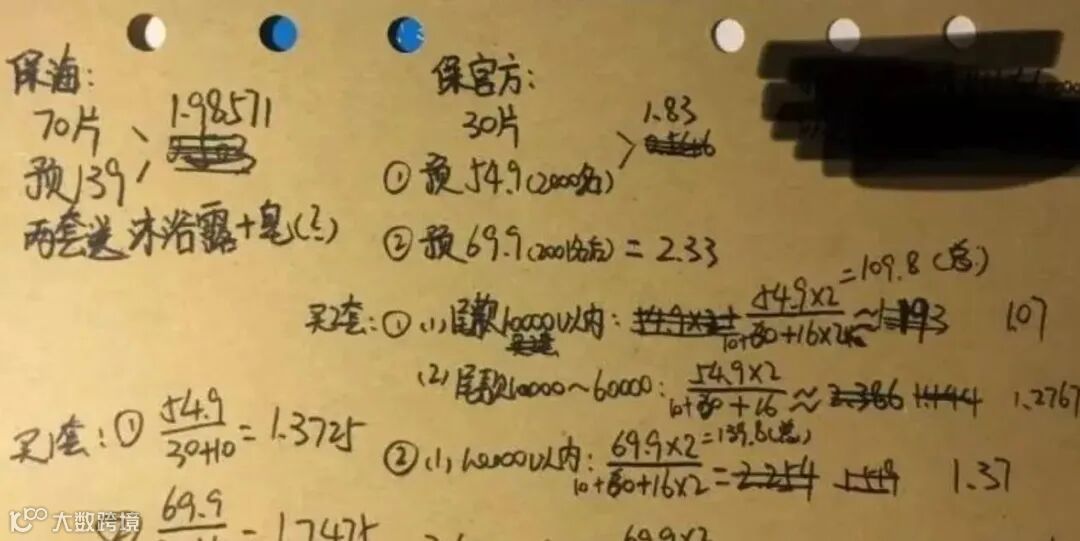 保海:
70片 > 1.98571
预139
两套送 沐浴露+皂(?)
保官方:
30片 > 1.83
① 预 54.9(2000名)
② 预 69.9(2000名后) = 2.33
买2套: ① (1) 尾款10000以内: 54.9×2/10+60+16×2 ≈ 1.07
=109.8(总)
(2) 尾款10000~60000: 54.9×2/10+60+16 ≈ 1.2767
② (1) 10000以内: 69.9×2/10+60+16×2 = 1.37
=139.8(总)
买1套: ① 54.9/30+10 = 1.3725
69.9 = 1.7475
69.9×2
大数跨境